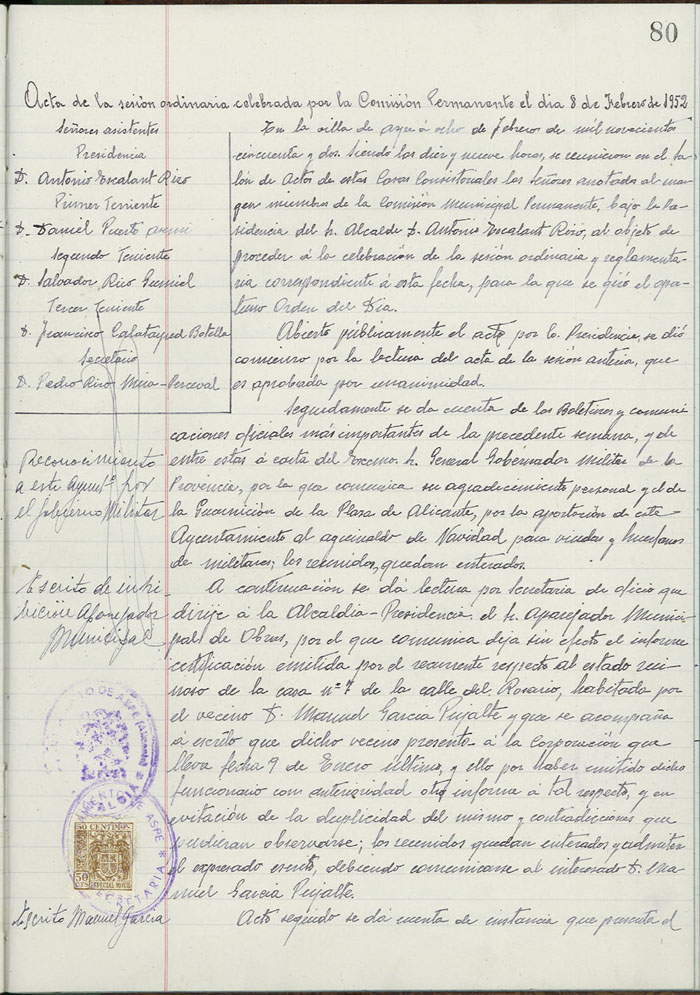 80
Acta de la sesión ordinaria celebrada por la Comisión Permanente el dia 8 de Febrero de 1952
Señores asistentes
Presidencia
D. Antonio Escalant Rizo
Primer Teniente
D. Daniel Puerto
Segundo Teniente
D. Salvador Rizo
Tercer Teniente
D. Francisco Calatayud Botella
Secretario
D. Pedro Rizo Mira-Perceval
En la villa de Aspe á ocho de Febrero de mil novecientos
cincuenta y dos. Siendo las diez y nueve horas, se reunieron en el Sa-
lón de Actos de estas Casas Consistoriales los Señores anotados al mar-
gen miembros de la Comisión Municipal Permanente, bajo la Pre-
sidencia del Sr. Alcalde D. Antonio Escalant Rizo, al objeto de
proceder á la celebración de la sesión ordinaria y reglamenta-
ria correspondiente á esta fecha, para la que se fijó el opor-
tuno Orden del Dia.
Abierto públicamente el acto por la Presidencia, se dió
comienzo por la lectura del acta de la sesión anterior, que
es aprobada por unanimidad.
Seguidamente se da cuenta de los Boletines y comuni-
caciones oficiales más importantes de la precedente semana, y de
entre estas á carta del Excmo. Sr. General Gobernador Militar de la
Provincia, por la que comunica su agradecimiento personal y el de
la Guarnición de la Plaza de Alicante, por la aportación de este
Ayuntamiento al aguinaldo de Navidad para viudas y huérfanos
de militares; los reunidos, quedan enterados.
Reconocimiento
a este Ayuntº por
el Gobierno Militar
A continuación se dá lectura por Secretaria de oficio que
dirije á la Alcaldia-Presidencia el Sr. Aparejador Munici-
pal de Obras, por el que comunica deja sin efecto el informe
certificación emitida por el recurrente respecto al estado rui-
noso de la casa nº 7 de la calle del Rosario, habitada por
el vecino D. Manuel Garcia Pujalte y que se acompaña
á escrito que dicho vecino presentó á la Corporación que
lleva fecha 9 de Enero último, y ello por haber emitido dicho
funcionario con anterioridad otro informe á tal respecto, y en
evitación de la duplicidad del mismo y contradicciones que
pudieran observarse; los reunidos quedan enterados y admiten
el expresado escrito, debiendo comunicarse al interesado D. Ma-
nuel Garcia Pujalte.
Escrito de inhi-
bición Aparejador
Municipal
AYUNTAMIENTO DE ASPE
SECRETARIA
50 CENTIMOS
50
CTS
ESPECIAL MOVIL
Escrito Manuel Garcia
Acto seguido se dá cuenta de instancia que presenta el